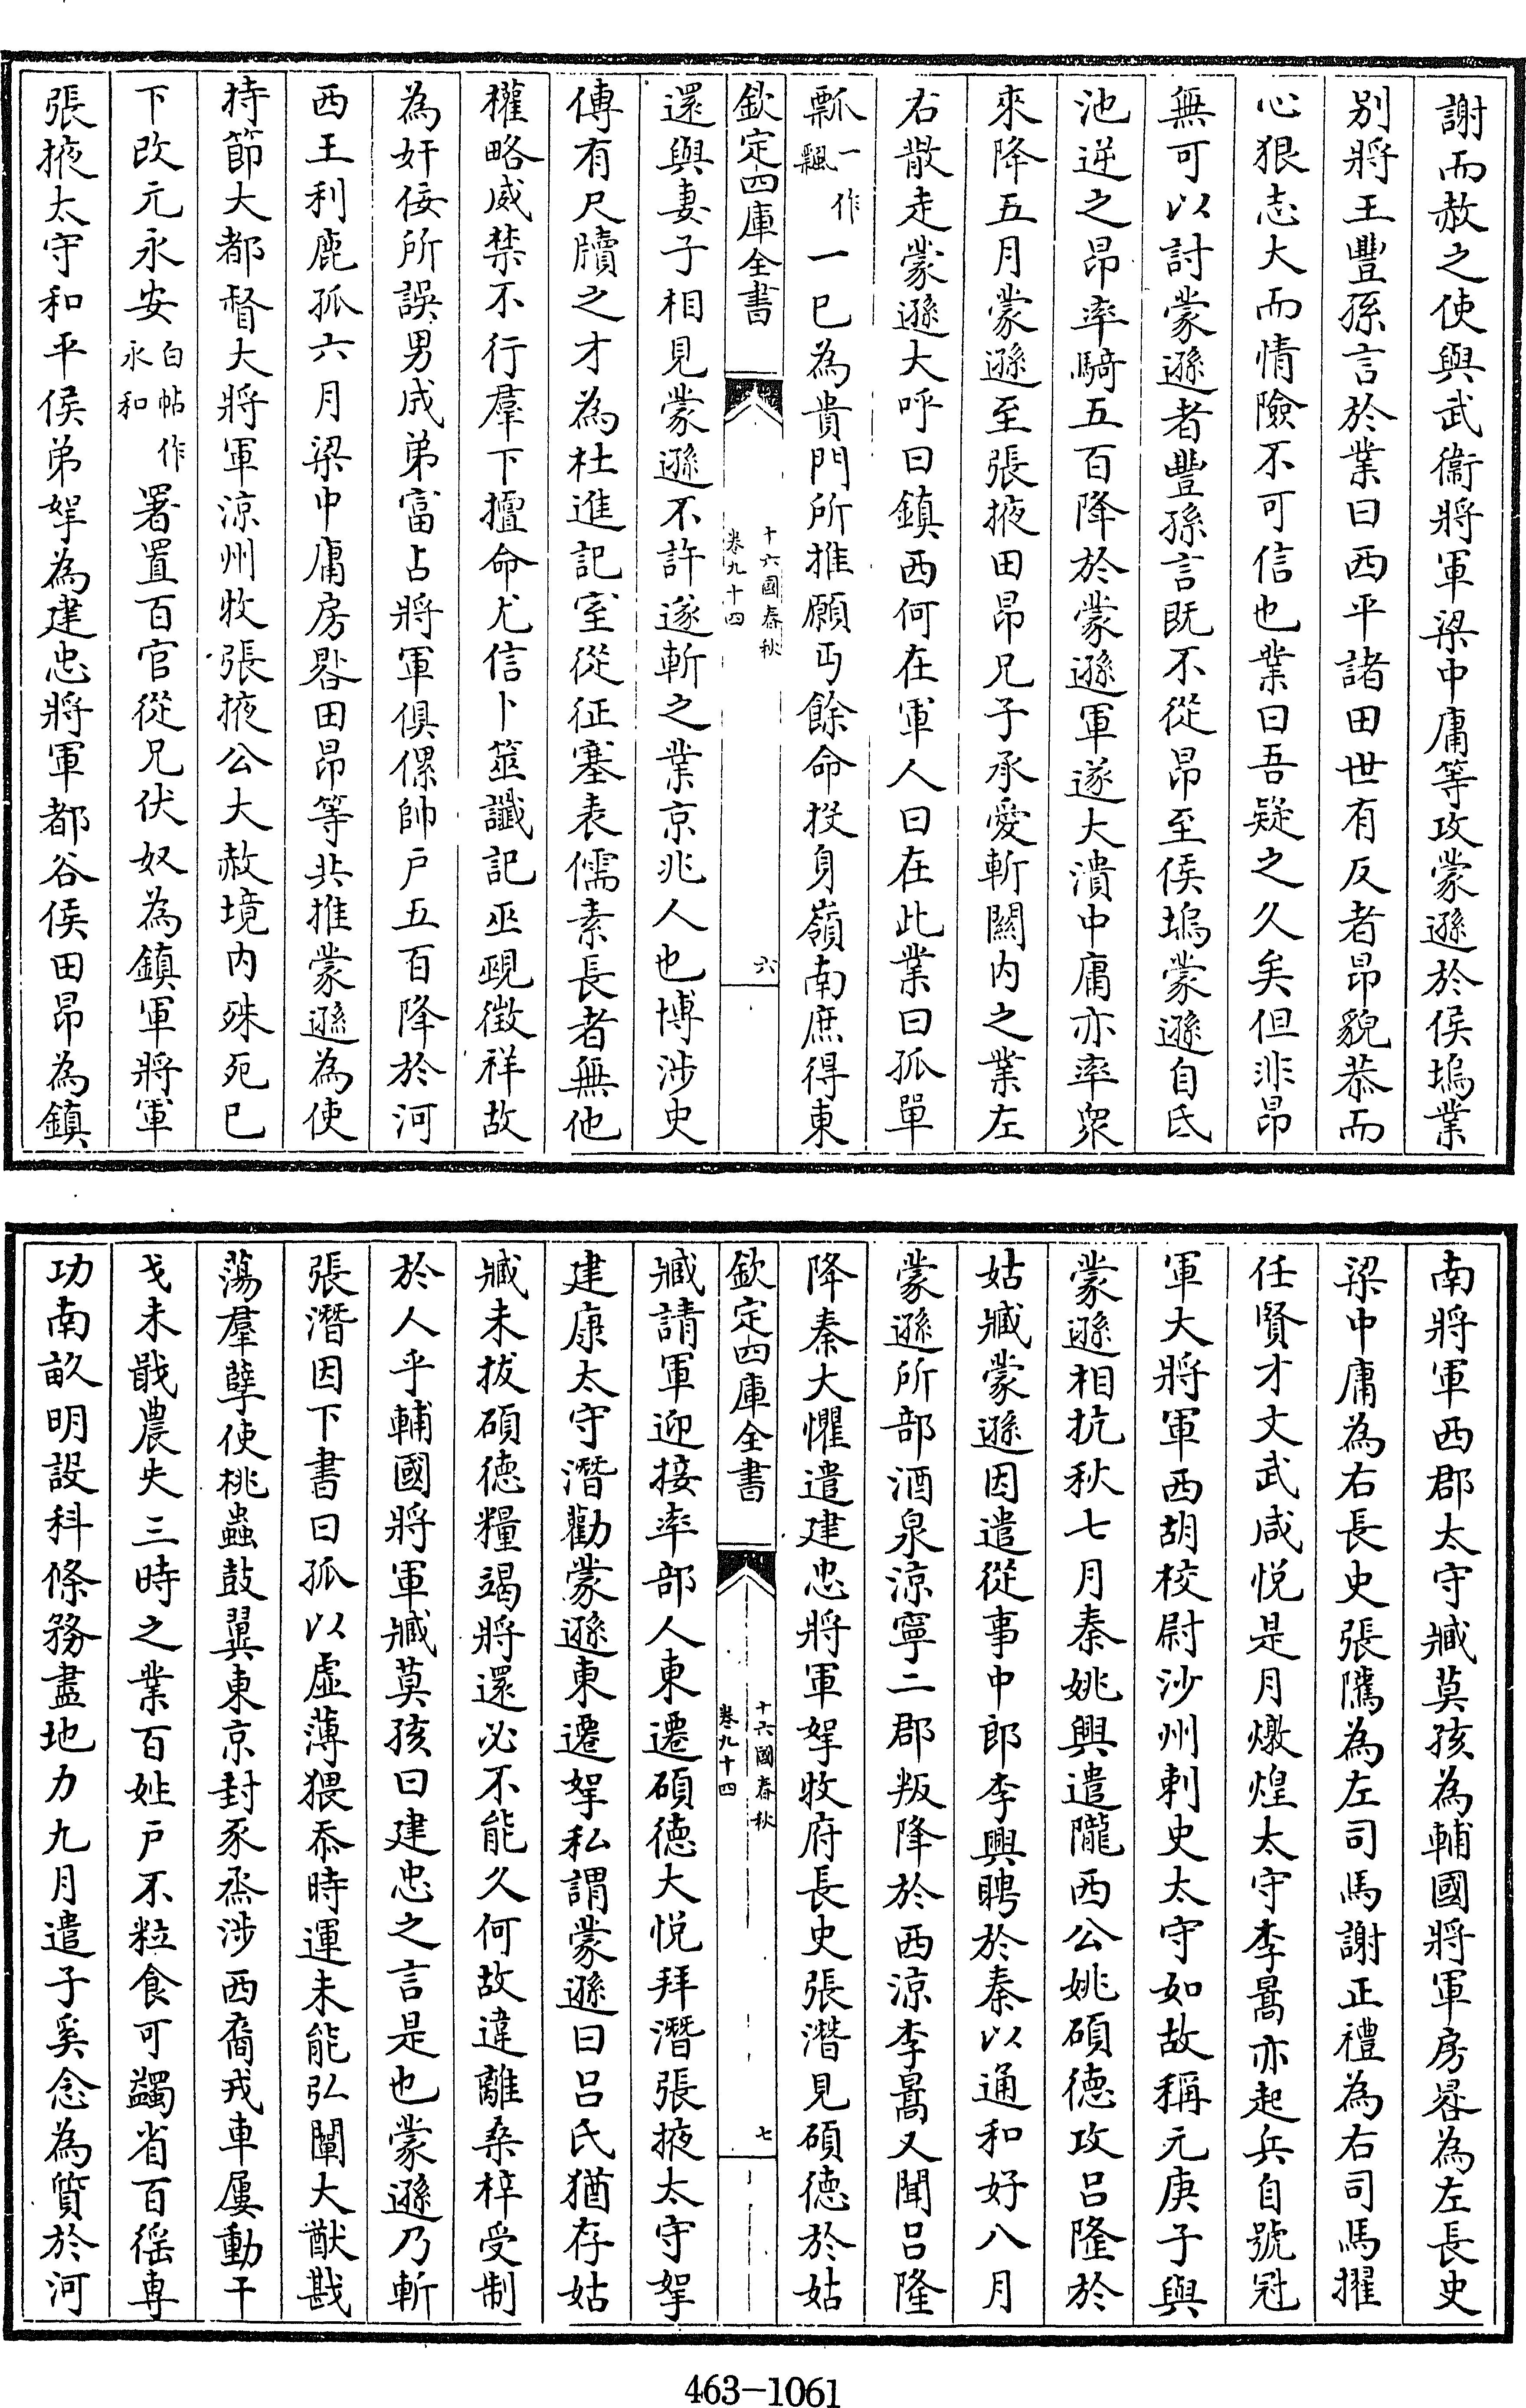 謝而赦之使與武衞將軍梁中庸等攻蒙遜於侯塢業
別將王豐孫言於業曰西平諸田世有反者昂貌恭而
心狠志大而情險不可信也業曰吾疑之久矣但非昂
無可以討蒙遜者豐孫言既不從昂至侯塢蒙遜自氐
池逆之昂率騎五百降於蒙遜軍遂大潰中庸亦率衆
來降五月蒙遜至張掖田昂兄子承愛斬關内之業左
右散走蒙遜大呼曰鎮西何在軍人曰在此業曰孤單
瓢一作飄一已為貴門所推願丐餘命投身嶺南庶得東
欽定四庫全書
十六國春秋
卷九十四
六
還與妻子相見蒙遜不許遂斬之業京兆人也博涉史
傳有尺牘之才為杜進記室從征塞表儒素長者無他
權略威禁不行羣下擅命尤信卜筮讖記巫覡徵祥故
為奸佞所誤男成弟富占將軍俱傫帥户五百降於河
西王利鹿孤六月梁中庸房晷田昂等共推蒙遜為使
持節大都督大將軍涼州牧張掖公大赦境内殊死已
下改元永安白帖作永和署置百官從兄伏奴為鎮軍將軍
張掖太守和平侯弟挐為建忠將軍都谷侯田昂為鎮
南將軍西郡太守臧莫孩為輔國將軍房晷為左長史
梁中庸為右長史張隲為左司馬謝正禮為右司馬擢
任賢才文武咸悦是月燉煌太守李暠亦起兵自號冠
軍大將軍西胡校尉沙州刺史太守如故稱元庚子與
蒙遜相抗秋七月秦姚興遣隴西公姚碩德攻吕隆於
姑臧蒙遜因遣從事中郎李興聘於秦以通和好八月
蒙遜所部酒泉涼寧二郡叛降於西涼李暠又聞吕隆
降秦大懼遣建忠將軍挐牧府長史張潛見碩德於姑
欽定四庫全書
十六國春秋
卷九十四
七
臧請軍迎接率部人東遷碩德大悦拜潛張掖太守挐
建康太守潛勸蒙遜東遷挐私謂蒙遜曰吕氏猶存姑
臧未拔碩德糧竭將還必不能久何故違離桑梓受制
於人乎輔國將軍臧莫孩曰建忠之言是也蒙遜乃斬
張潛因下書曰孤以虚薄猥忝時運未能弘闡大猷戡
蕩羣孽使桃蟲鼓翼東京封豕烝涉西裔戎車屢動干
戈未戢農失三時之業百姓户不粒食可蠲省百徭專
功南畝明設科條務盡地力九月遣子奚念為質於河
463-1061